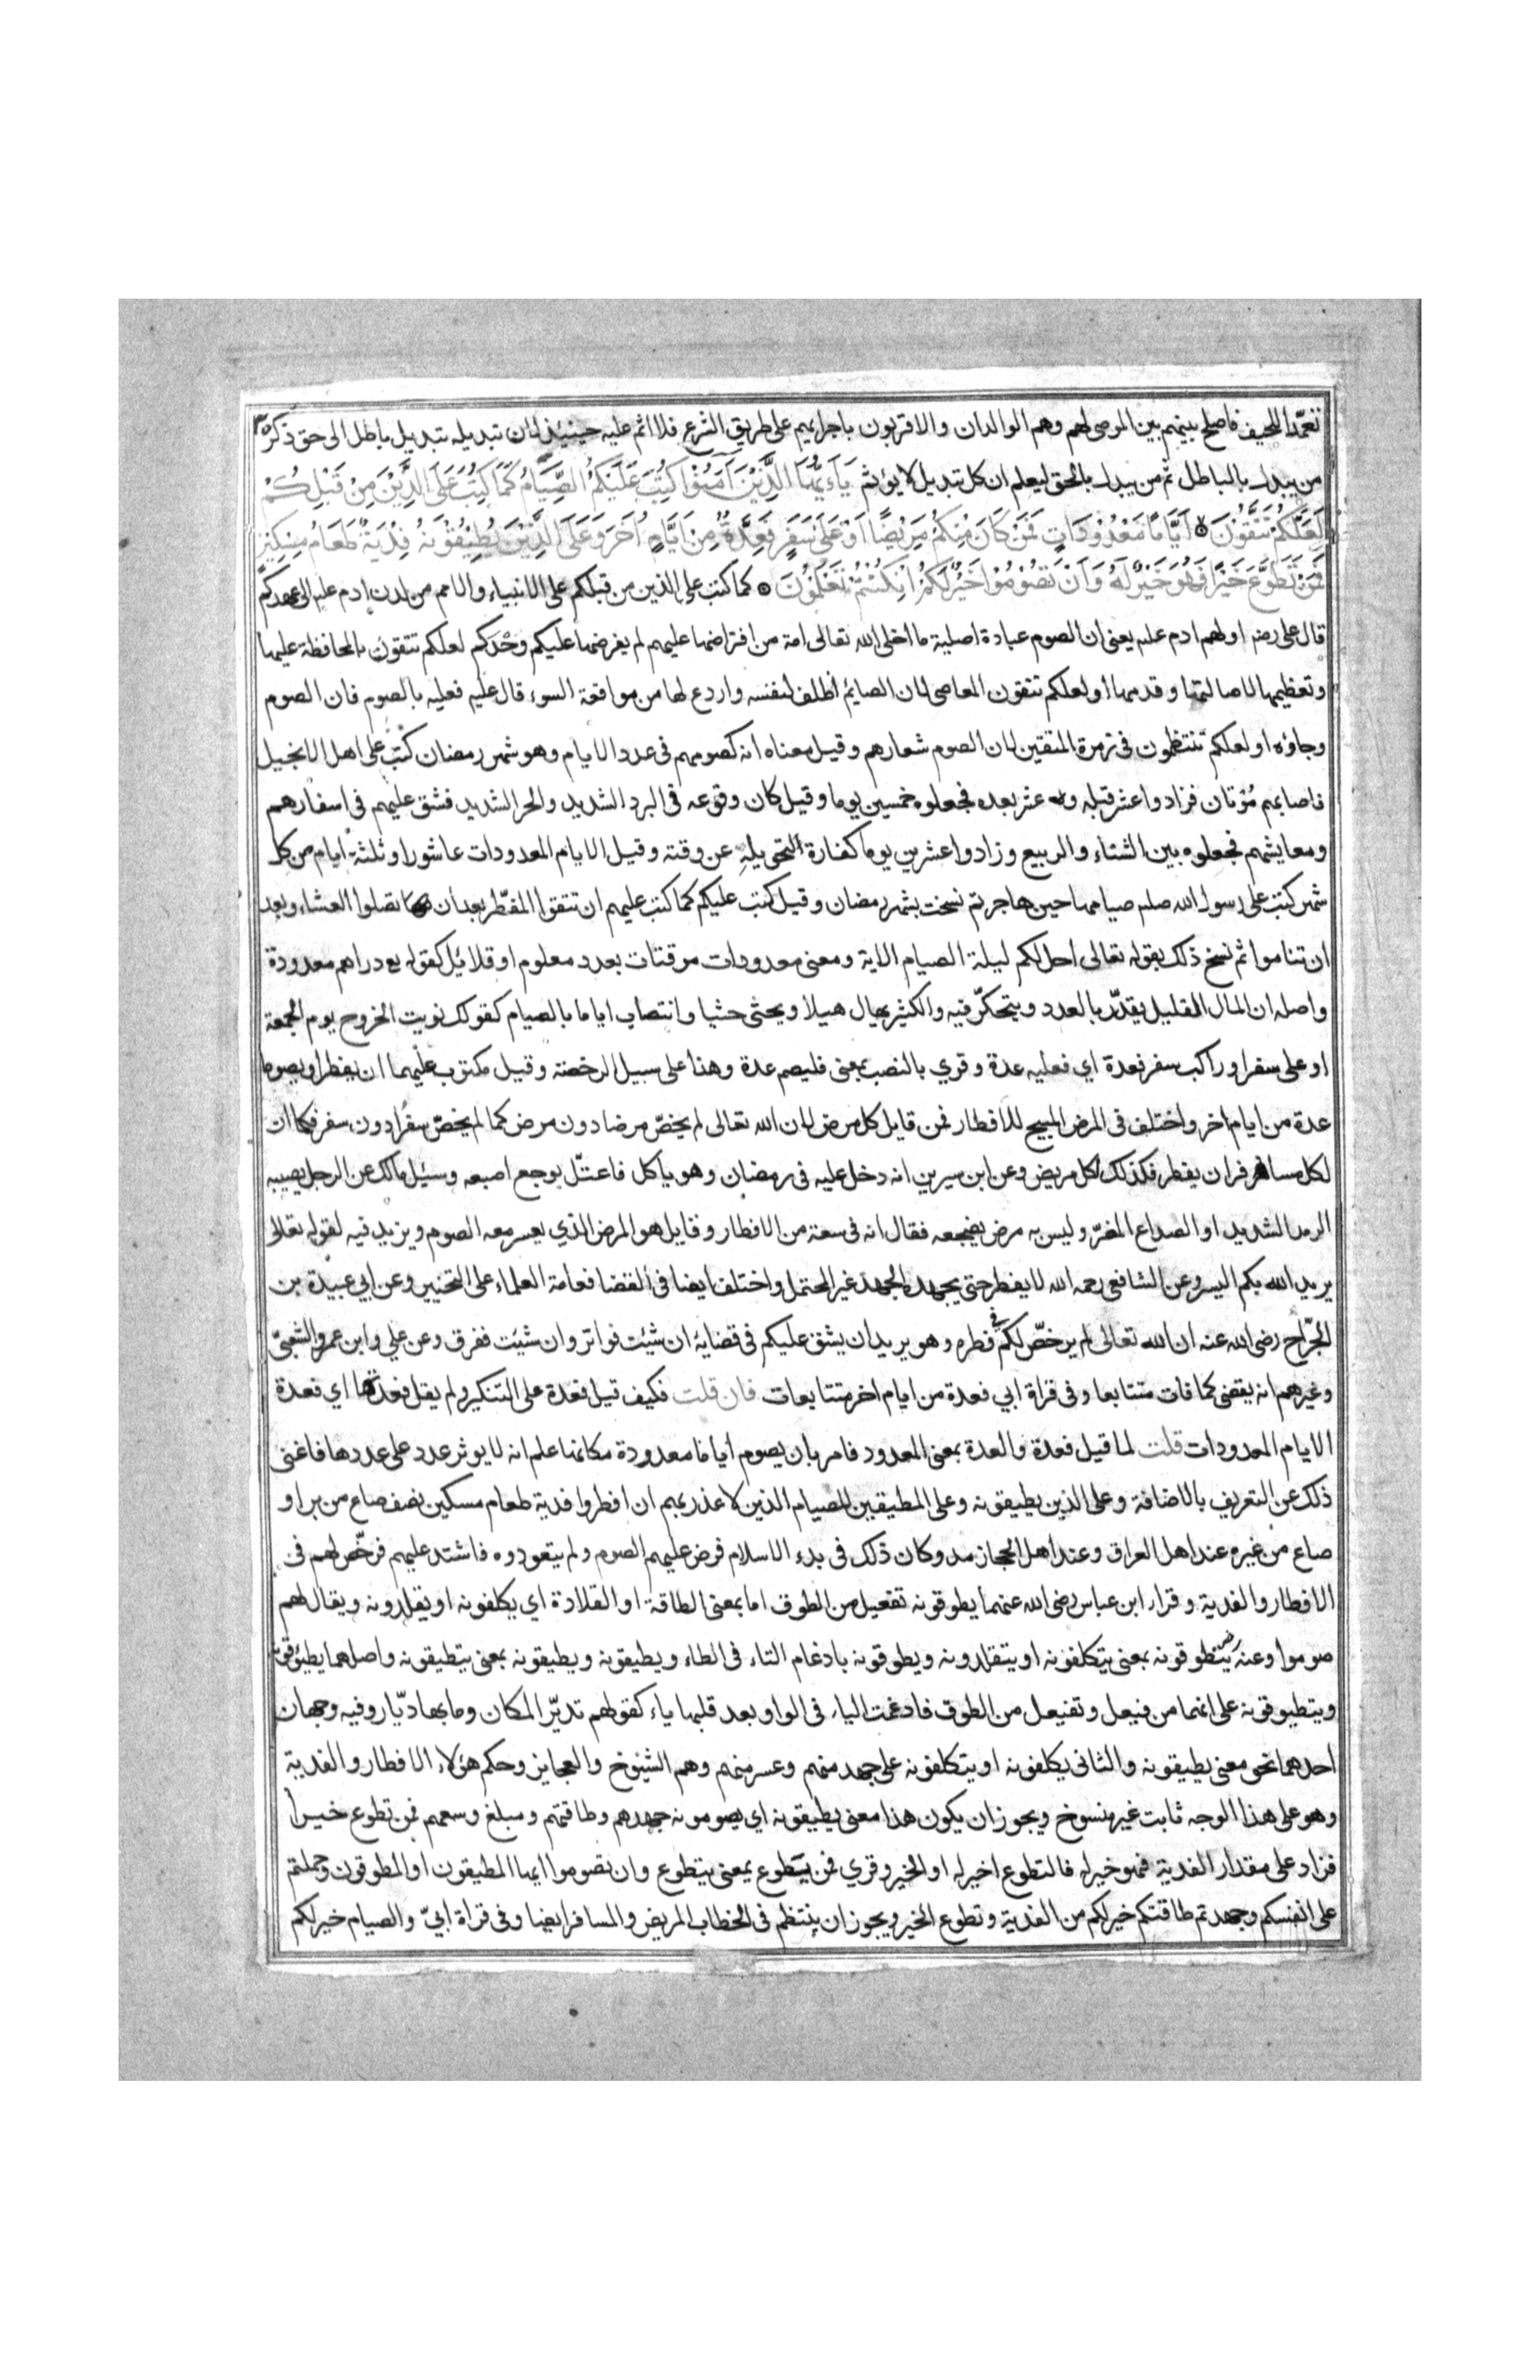 تعمّدا للحيف فاصلح بينهم بين الموصى لهم وهم الوالدان والاقربون باجرائهم على طريق الشرع فلا اثم عليه حينئذ لان تبديله تبديل باطل الى حق ذكر
من يبدل بالباطل ثم من يبدل بالحق ليعلم ان كل تبديل لا يؤثم يَاءَيُّهَا الَّذِيْنَ آمَنُوْا كُتِبَ عَلَيْكُمُ الصِّيَامُ كَمَا كُتِبَ عَلَى الَّذِيْنَ مِنْ قَبْلِكُمْ
لَعَلَّكُمْ تَتَّقُوْنَ اَيَّامًا مَعْدُوْدَاتٍ فَمَنْ كَانَ مِنْكُمْ مَرِيْضًا اَوْ عَلَى سَفَرٍ فَعِدَّةٌ مِنْ اَيَّامٍ اُخَرَ وَعَلَى الَّذِيْنَ يُطِيْقُوْنَهُ فِدْيَةٌ طَعَامُ مِسْكِيْنٍ
فَمَنْ تَطَوَّعَ خَيْرًا فَهُوَ خَيْرٌ لَهُ وَاَنْ تَصُوْمُوْا خَيْرٌ لَكُمْ اِنْ كُنْتُمْ تَعْلَمُوْنَ كما كتب على الذين من قبلكم على الانبياء والامم من لدن ادم عليه الى عهدكم
قال على رضه اولهم ادم عليه يعنى ان الصوم عبادة اصلية ما اخلى الله تعالى امة من افتراضها عليهم لم يفرضها عليكم وحْدكم لعلكم تتقون بالمحافظة عليها
وتعظيمها لاصالتها وقدمها او لعلكم تتقون المعاصى لان الصائم اظلف لنفسه واردع لها من مواقعة السوء قال عليه فعليه بالصوم فان الصوم
وجاؤه او لعلكم تنتظمون فى زمرة المتقين لان الصوم شعارهم وقيل معناه انه كصومهم فى عدد الايام وهو شهر رمضان كُتب على اهل الانجيل
فاصابهم مُوْتان فزادوا عشر قبله و عشر بعده فجعلوه خمسين يوما وقيل كان وقوعه فى البرد الشديد والحر الشديد فشق عليهم فى اسفارهم
ومعايشهم فجعلوه بين الشتاء والربيع وزادوا عشرين يوما كفارة لتحويله عن وقته وقيل الايام المعدودات عاشورا وثلثة ايام من كل
شهر كتب على رسول الله صلم صيامها حين هاجر ثم نسخت بشهر رمضان وقيل كتب عليكم كما كتب عليهم ان تتقوا المفطر بعد ان تصلوا العشاء وبعد
ان تناموا ثم نسخ ذلك بقوله تعالى احل لكم ليلة الصيام الاية ومعنى معدودات موقتات بعدد معلوم او قلائل كقوله دراهم معدودة
واصله ان المال القليل يقدّر بالعدد ويتحكّر فيه والكثير يهال هيلا ويحثى حثيا وانتصاب اياما بالصيام كقولك نويت الخروج يوم الجمعة
او على سفر او راكب سفر فعدة اي فعليه عدة وقري بالنصب بمعنى فليصم عدة وهذا على سبيل الرخصة وقيل مكتوب عليهما ان يفطرا ويصوما
عدة من ايام اخر واختلف فى المرض المبيح للافطار فمن قايل كل مرض لان الله تعالى لم يخصّ مرضا دون مرض كما لم يخصّ سفرا دون سفر فكما ان
لكل مسافر ان يفطر فكذلك لكل مريض وعن ابن سيرين انه دخل عليه فى رمضان وهو ياكل فاعتلّ بوجع اصبعه وسئل مالك عن الرجل يصيبه
الرمد الشديد او الصداع المضرّ وليس به مرض يضجعه فقال انه فى سعة من الافطار وقايل هو المرض الذي يعسر معه الصوم ويزيد فيه لقوله تعالى
يريد الله بكم اليسر وعن الشافعى رحمه الله لا يفطر حتى يجهده الجهد غير المحتمل واختلف ايضا فى القضا فعامة العلماء على التخيير وعن ابي عبيدة بن
الجرّاح رضى الله عنه ان الله تعالى لم يرخصّ لكم في فطره وهو يريد ان يشق عليكم فى قضايه ان شئت فواتر وان شئت ففرق وعن علي وابن عمر والشعبىّ
وغيرهم انه يقضى كما فات متتابعا وفى قراة ابي فعدة من ايام اخر متتابعات فان قلت فكيف قيل فعدة على التنكير ولم يقل فعدتها اي فعدة
الايام المعدودات قلت لما قيل فعدة والعدة بمعنى المعدود فامر بان يصوم اياما معدودة مكانها علم انه لا يوثر عدد على عددها فاغنى
ذلك عن التعريف بالاضافة وعلى الذين يطيقونه وعلى المطيقين للصيام الذين لا عذر بهم ان افطروا فدية طعام مسكين نصف صاع من بر او
صاع من غيره عند اهل العراق وعند اهل الحجاز مد وكان ذلك فى بدء الاسلام فرض عليهم الصوم ولم يتعودوه فاشتد عليهم فرخّص لهم فى
الافطار والفدية وقراء ابن عباس رضى الله عنهما يطوقونه تفعيل من الطوق اما بمعنى الطاقة او القلادة اي يكلفونه او يقلدونه ويقال لهم
صوموا وعنه يتطوقونه بمعنى يتكلفونه او يتقلدونه ويطوقونه بادغام التاء فى الطاء ويطيقونه ويطيقونه بمعنى يتطيقونه واصلهما يطيوقونه
ويتطيوقونه على انهما من فيعل وتفيعل من الطوق فادغمت الياء فى الواو بعد قلبها ياء كقولهم تديّر المكان وما بها ديّار وفيه وجهان
احدهما نحو معنى يطيقونه والثانى يكلفونه او يتكلفونه على جهد منهم وعسر منهم وهم الشيوخ والعجايز وحكم هؤلاء الافطار والفدية
وهو على هذا الوجه ثابت غير منسوخ ويجوز ان يكون هذا معنى يطيقونه اي يصومونه جهدهم وطاقتهم ومبلغ وسعهم فمن تطوع خيرا
فزاد على مقدار الفدية فهو خير له فالتطوع اخير له او الخير وقري فمن يتطوع بمعنى يتطوع وان تصوموا ايها المطيقون او المطوقون وحملتم
على انفسكم وجهدتم طاقتكم خير لكم من الفدية وتطوع الخير ويجوز ان ينتظم فى الخطاب المريض والمسافر ايضا وفى قراة ابيّ والصيام خير لكم